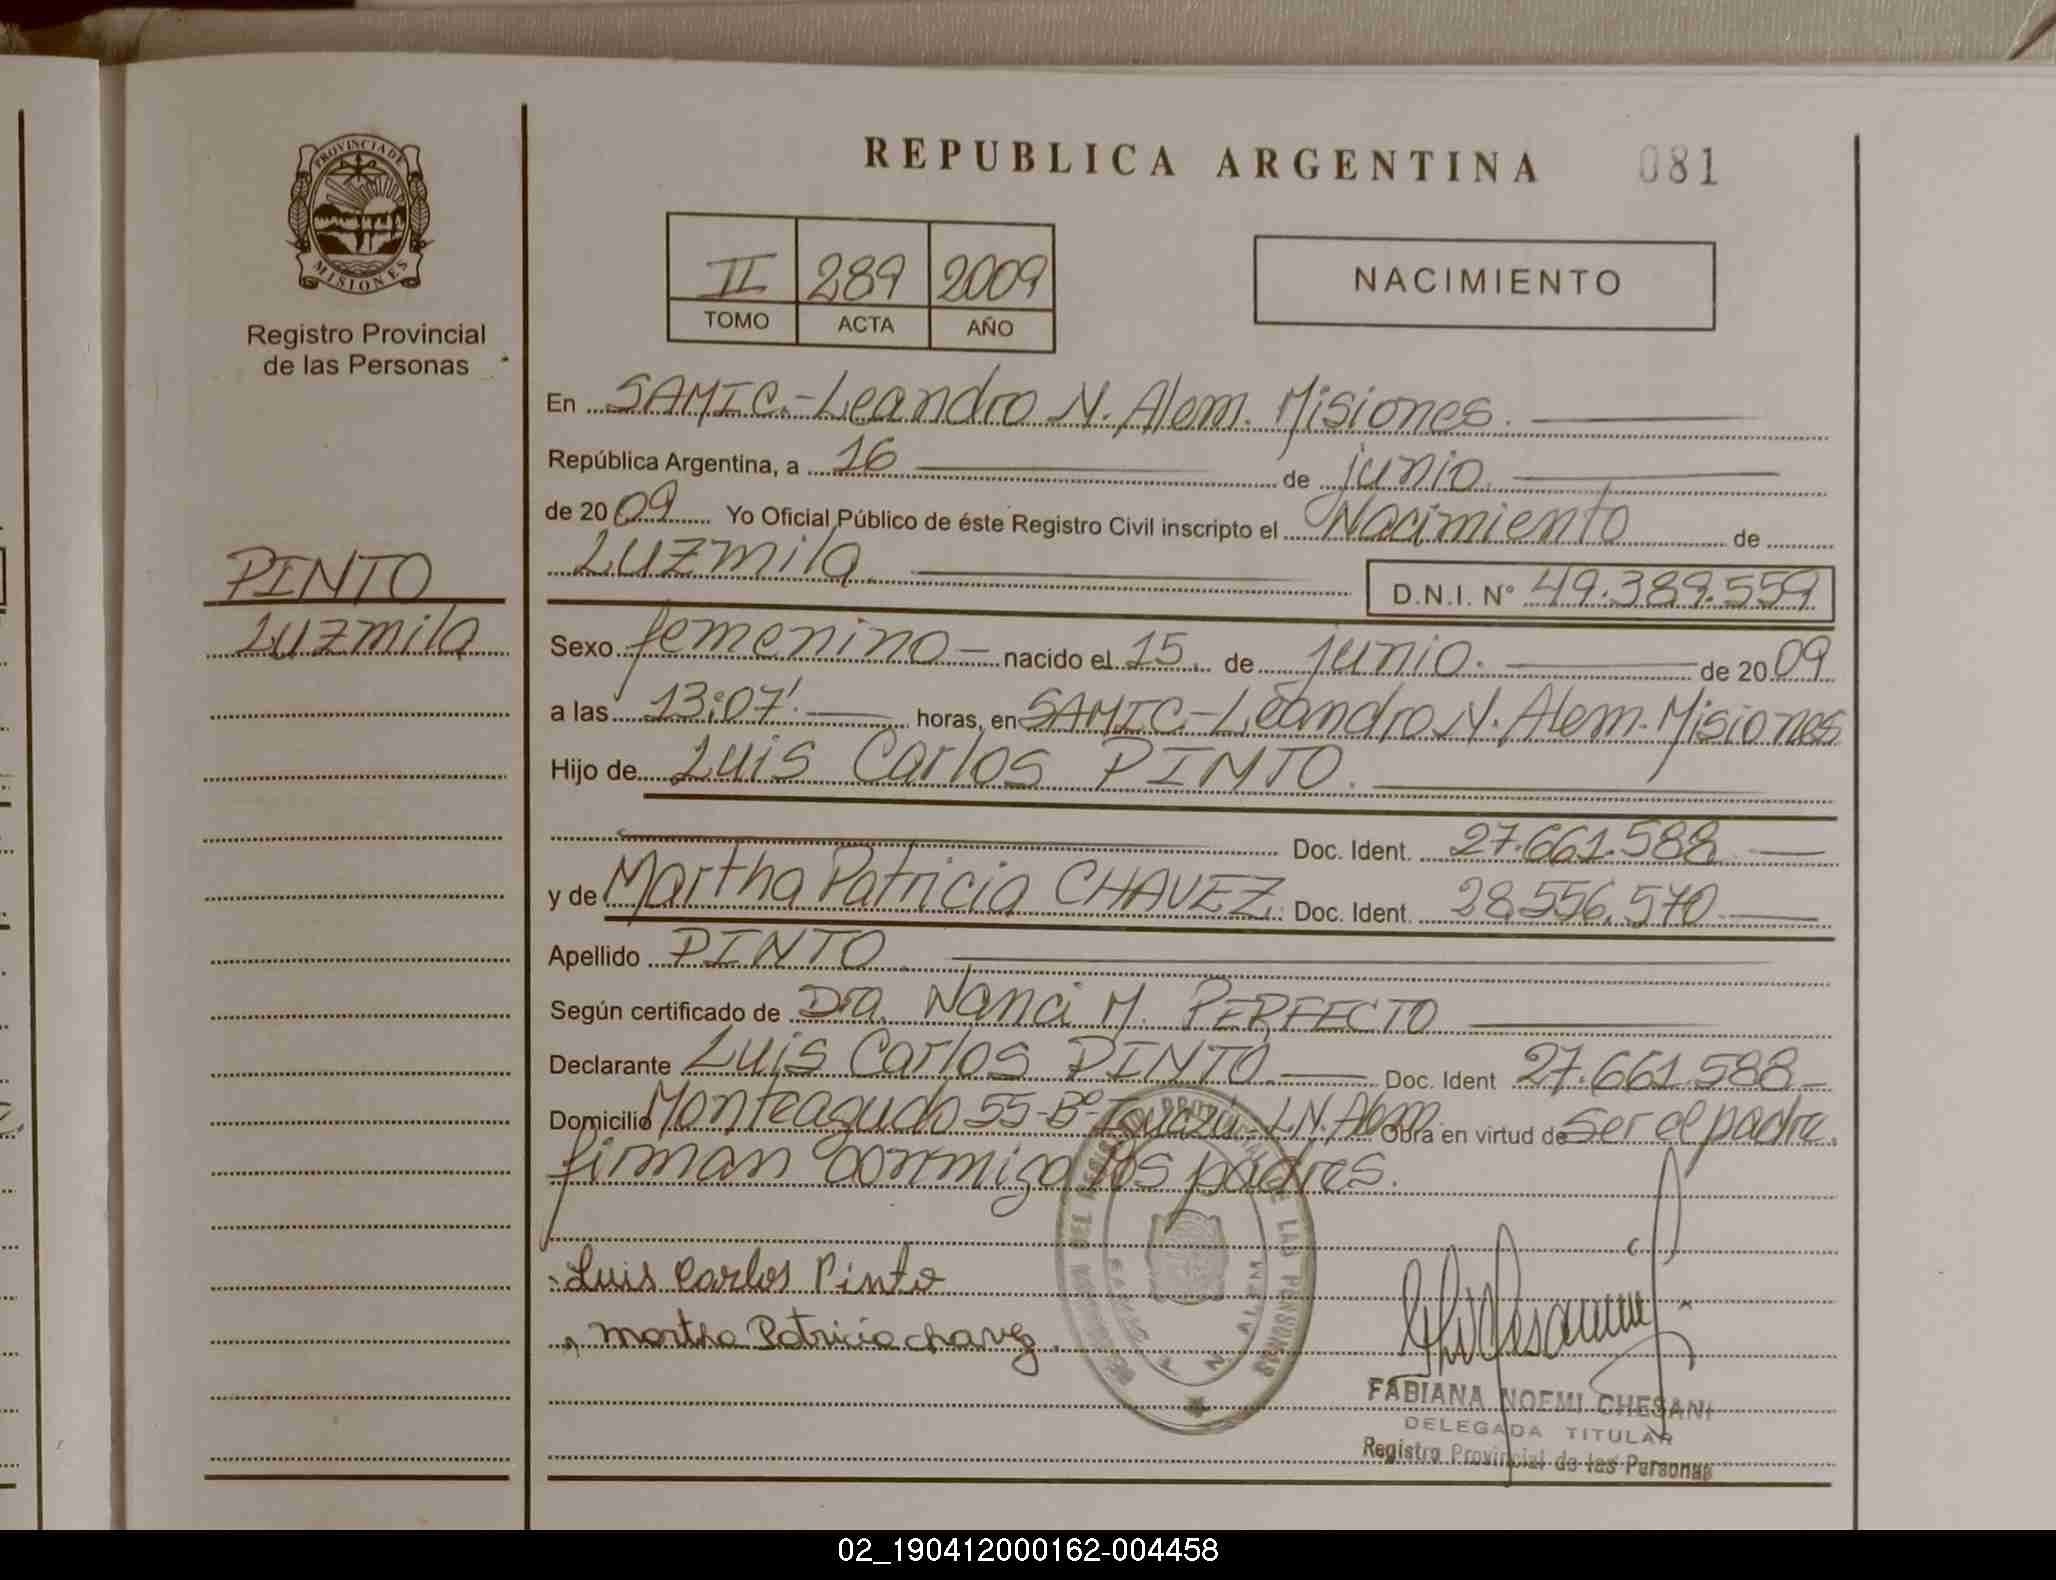 REPUBLICA ARGENTINA 081
PROVINCIA DE
MISIONES
Registro Provincial
de las Personas
II 289 2009
TOMO ACTA AÑO
NACIMIENTO
En SAMIC.-Leandro N. Alem. Misiones.
República Argentina, a 16 de junio.
de 2009 Yo Oficial Público de éste Registro Civil inscripto el Nacimiento de
Luzmila. D.N.I. N° 49.389.559
PINTO
Luzmila
Sexo femenino nacido el 15. de junio. de 2009
a las 13:07' horas, en SAMIC-Leandro N. Alem-Misiones
Hijo de Luis Carlos PINTO.
Doc. Ident. 27.661.588
y de Martha Patricia CHAVEZ. Doc. Ident. 28.556.570
Apellido PINTO.
Según certificado de Dra. Nanci M. PERFECTO
Declarante Luis Carlos PINTO. Doc. Ident 27.661.588
Domicilio Monteagudo 55-B°-Iguazú-L.N.Alem. Obra en virtud de ser el padre.
firman conmigo los padres.
Luis Carlos Pinto
Martha Patricia chavez.
DEL REGISTRO PROVINCIAL DE LAS PERSONAS
N. ALEM
FABIANA NOEMI CHESANI
DELEGADA TITULAR
Registro Provincial de las Personas
02_190412000162-004458